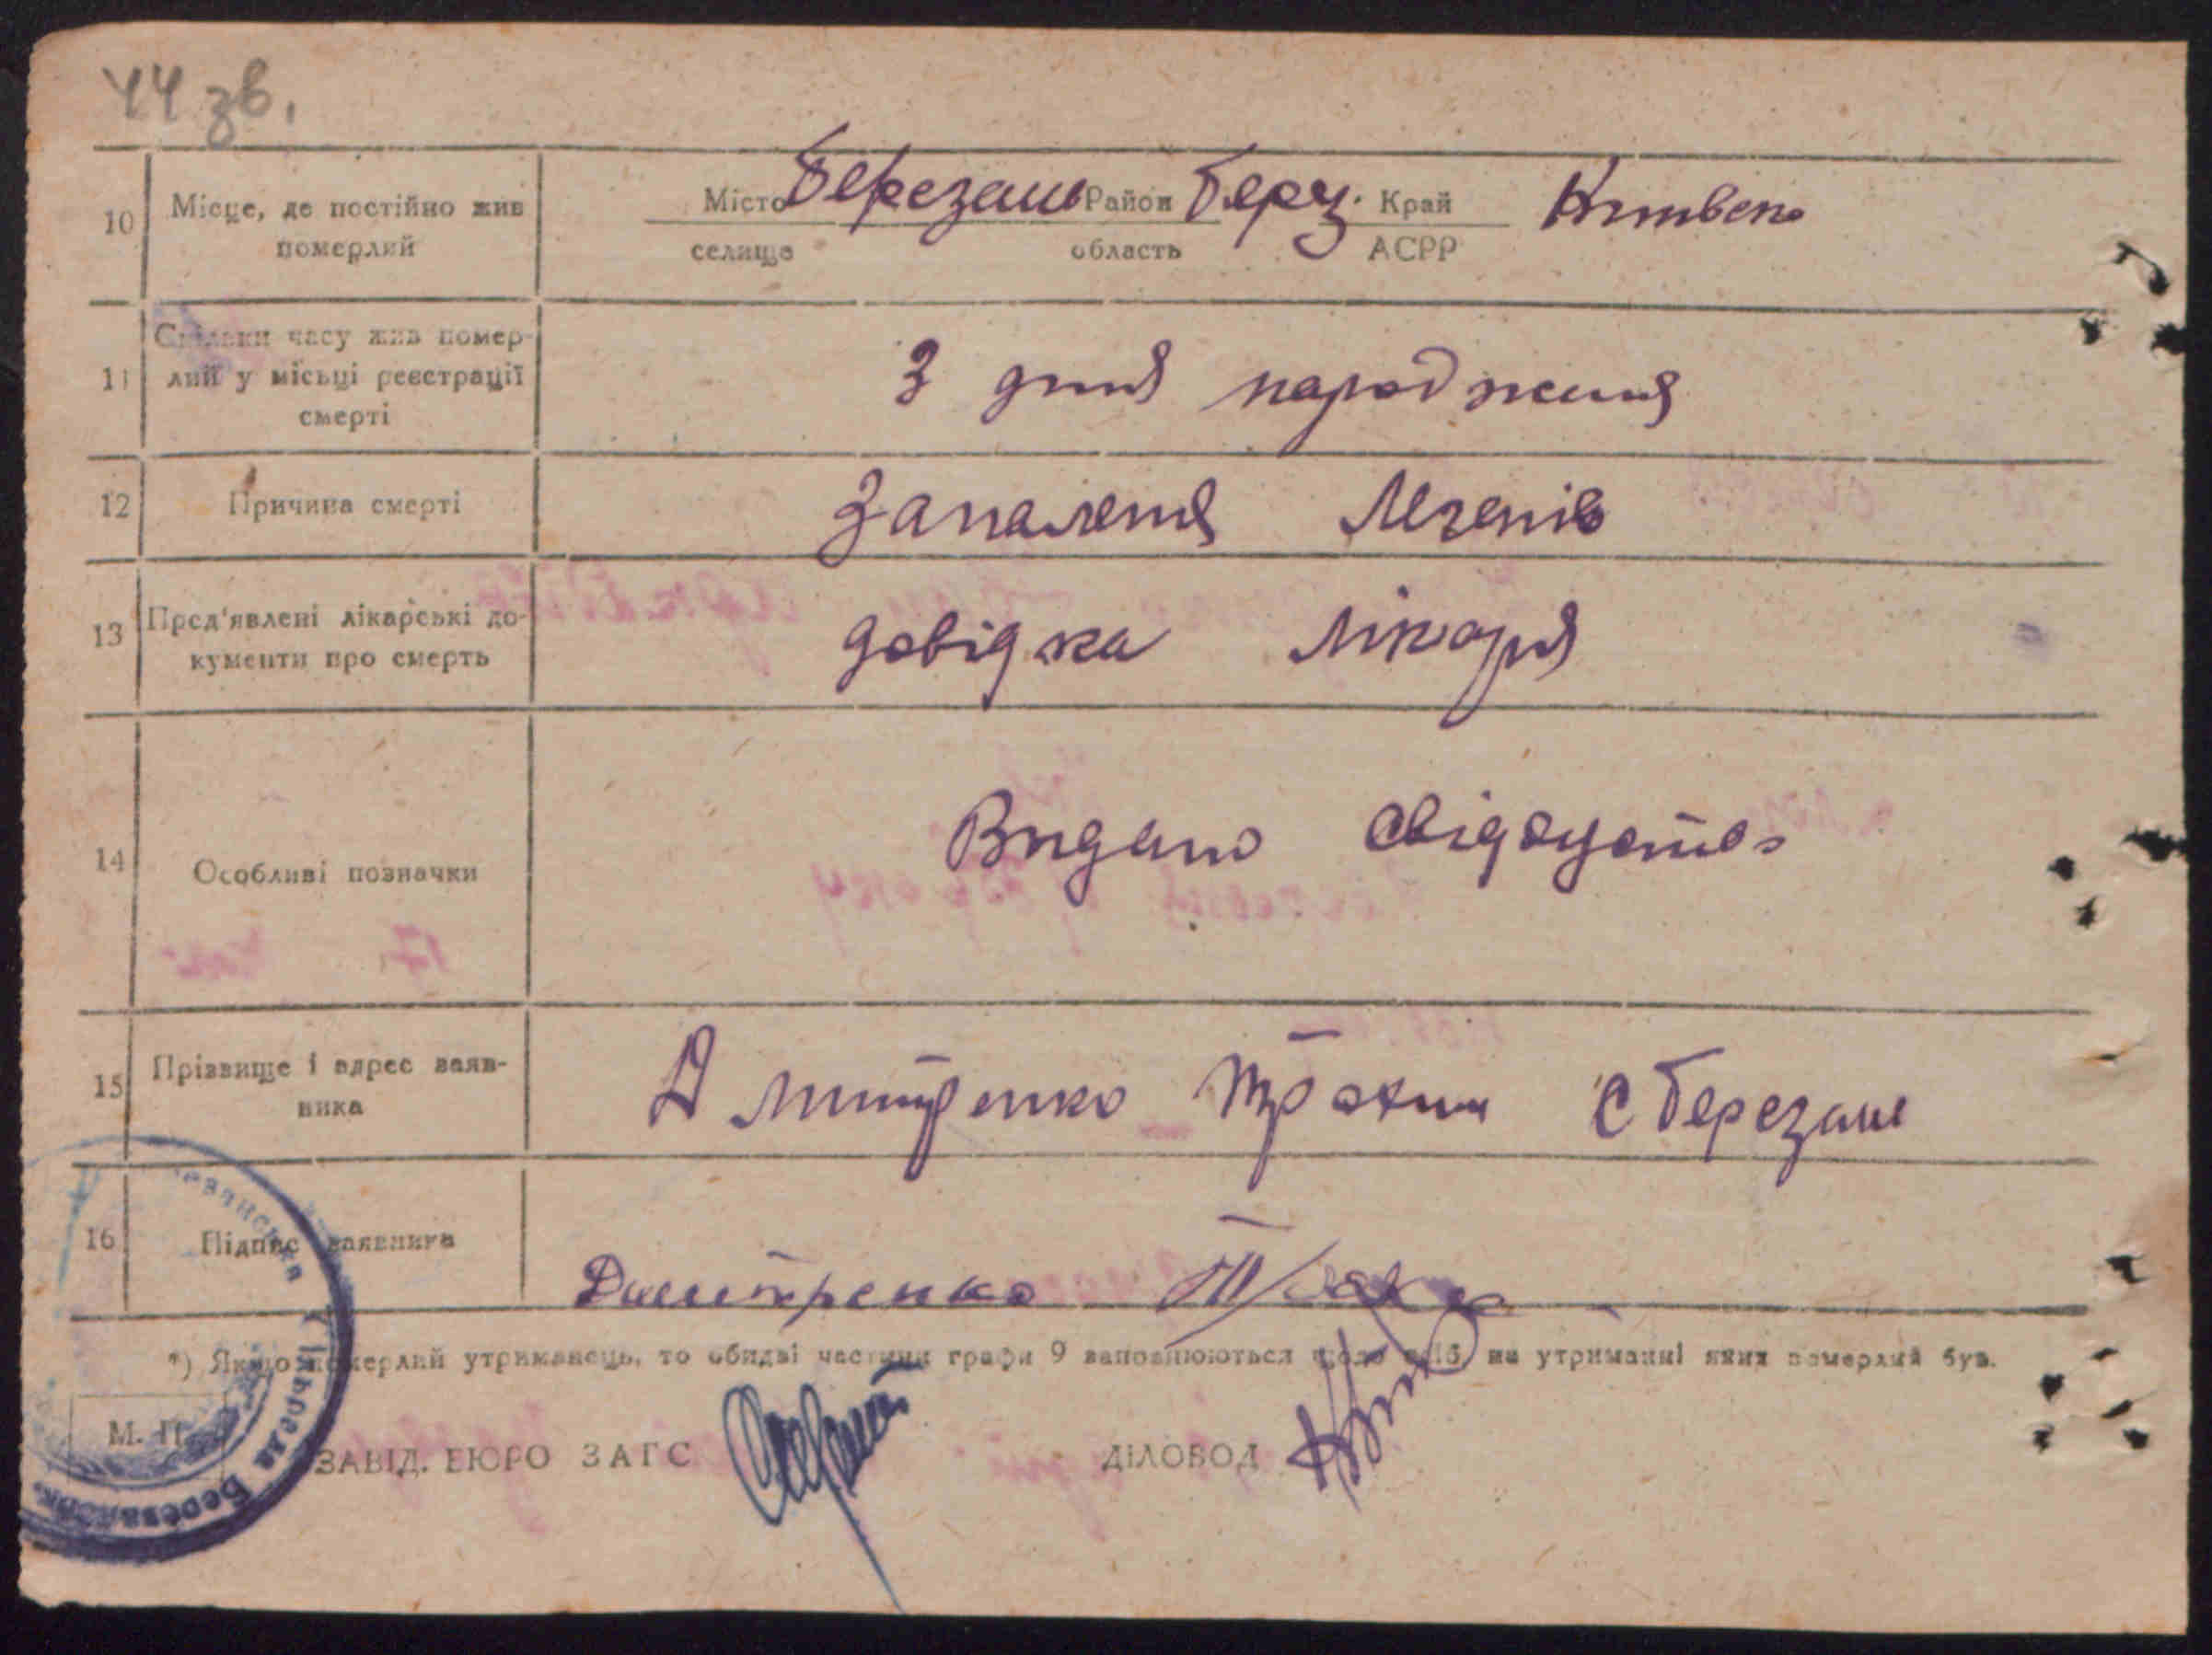 44 зв.
10 Місце, де постійно жив Місто Березань Район Берз. Край
померлий селище область АСРР
11 Скільки часу жив помер-
лий у місьці реєстрації З дня народження
смерті
12 Причина смерті Запалення легенів
13 Пред'явлені лікарські до- довідка лікаря
кументи про смерть
14 Особливі позначки Видано свідоцтво
15 Прізвище і адрес заяв- Дмитренко Трохим с Березань
ника
16 Підпис заявника Дмитренко
*) Якщо померлий утриманець, то обидві частини графи 9 заповнюються щодо осіб, на утриманні яких померлий був.
М. П.
ЗАВІД. БЮРО ЗАГС ДІЛОВОД